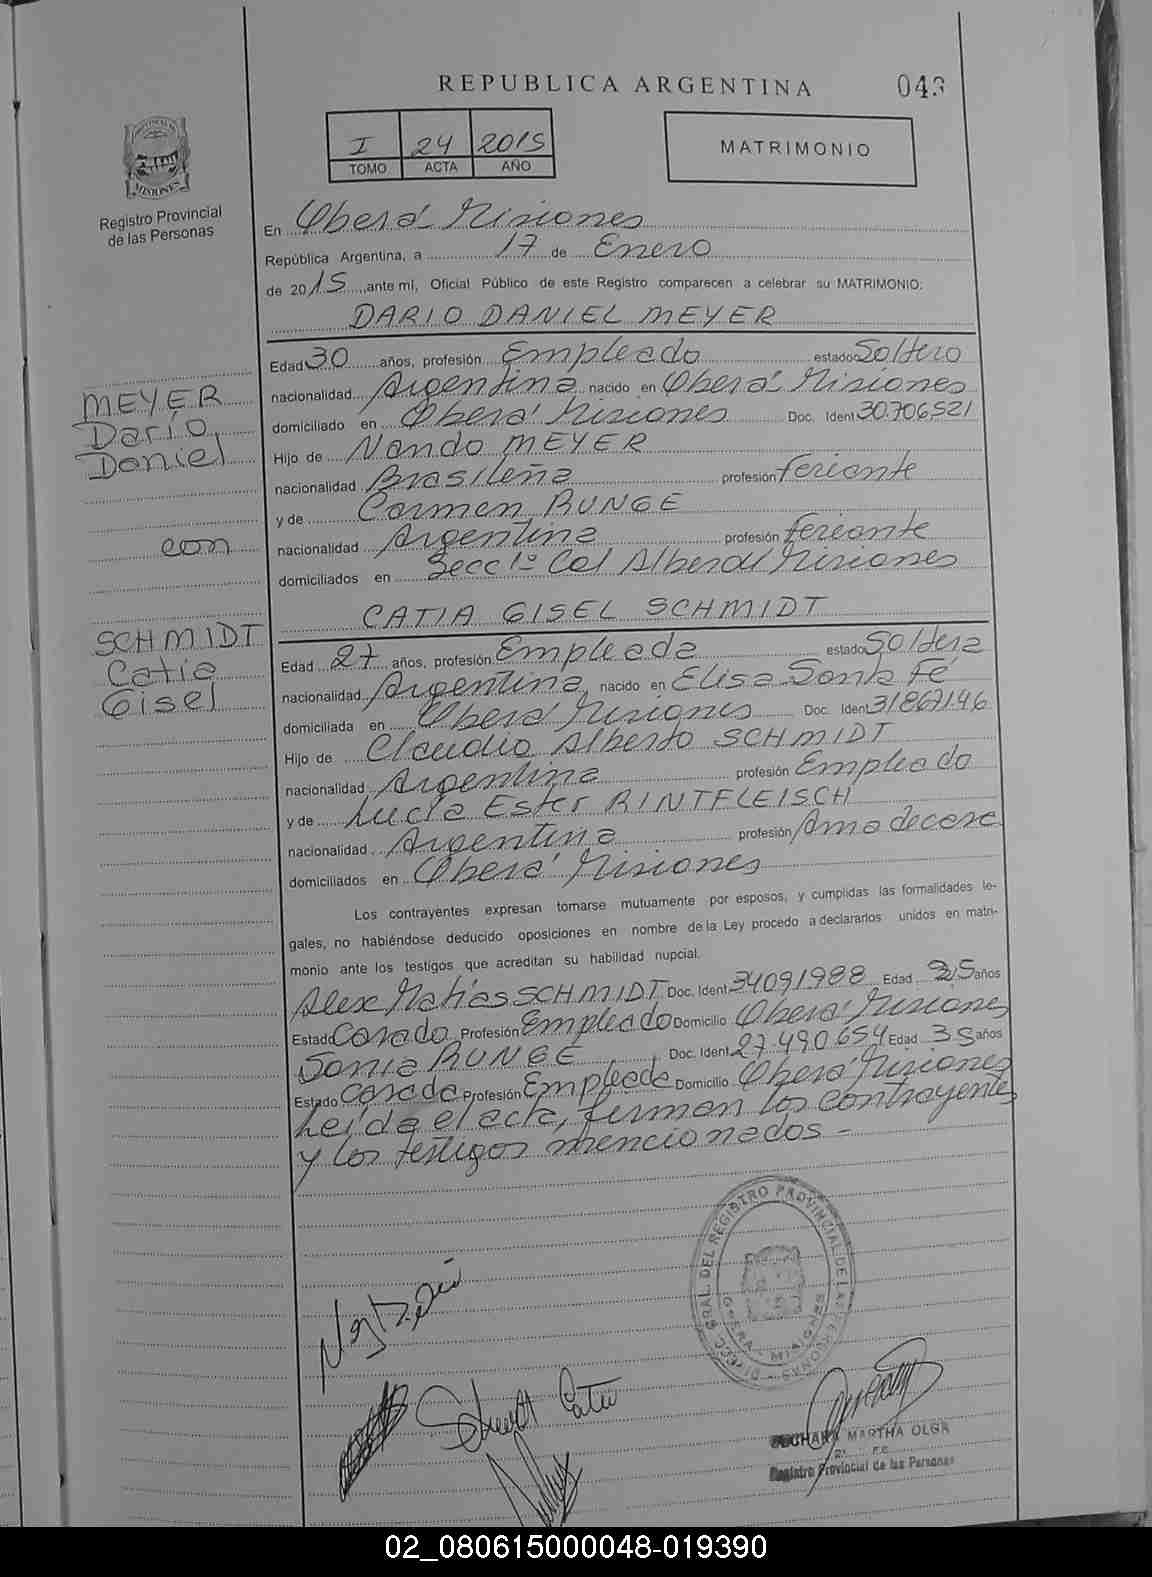 REPUBLICA ARGENTINA
043
PROVINCIA DE
MISIONES
Registro Provincial
de las Personas
I 24 2015
TOMO ACTA AÑO
MATRIMONIO
En Oberá Misiones
República Argentina, a 17 de Enero
de 2015, ante mí, Oficial Público de este Registro comparecen a celebrar su MATRIMONIO:
DARIO DANIEL MEYER
Edad 30 años, profesión Empleado estado Soltero
nacionalidad Argentina nacido en Oberá Misiones
domiciliado en Oberá Misiones Doc. Ident 30.706.521
Hijo de Nando MEYER
nacionalidad Brasileña profesión feriante
y de Carmen RUNGE
nacionalidad Argentina profesión feriante
domiciliados en Secc 1º Col Alberdi Misiones
MEYER
Darío
Daniel
con
SCHMIDT
Catia
Gisel
CATIA GISEL SCHMIDT
Edad 27 años, profesión Empleada estado Soltera
nacionalidad Argentina nacido en Elisa Santa Fé
domiciliada en Oberá Misiones Doc. Ident 31867146
Hijo de Claudio Alberto SCHMIDT
nacionalidad Argentina profesión Empleado
y de Lucía Ester RINTFLEISCH
nacionalidad Argentina profesión Ama de casa
domiciliados en Oberá Misiones
Los contrayentes expresan tomarse mutuamente por esposos, y cumplidas las formalidades le-
gales, no habiéndose deducido oposiciones en nombre de la Ley procedo a declararlos unidos en matri-
monio ante los testigos que acreditan su habilidad nupcial.
Alex Matías SCHMIDT Doc. Ident 34091988 Edad 25 años
Estado Casado Profesión Empleado Domicilio Oberá Misiones
Sonia RUNGE Doc. Ident 27.490.654 Edad 35 años
Estado Casada Profesión Empleada Domicilio Oberá Misiones
Leída el acta, firman los contrayentes
y los testigos mencionados -
DIRECC. GRAL. DEL REGISTRO PROVINCIAL DE LAS PERSONAS
OBERA - MISIONES
MARTHA OLGA
Registro Provincial de las Personas
02_080615000048-019390